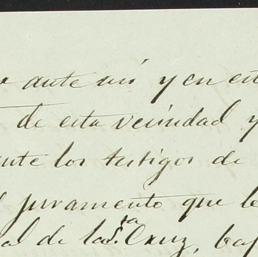 ante mi y en es
de esta vecindad y
ante los testigos de
juramento que le
al de la S.ra Cruz, baj